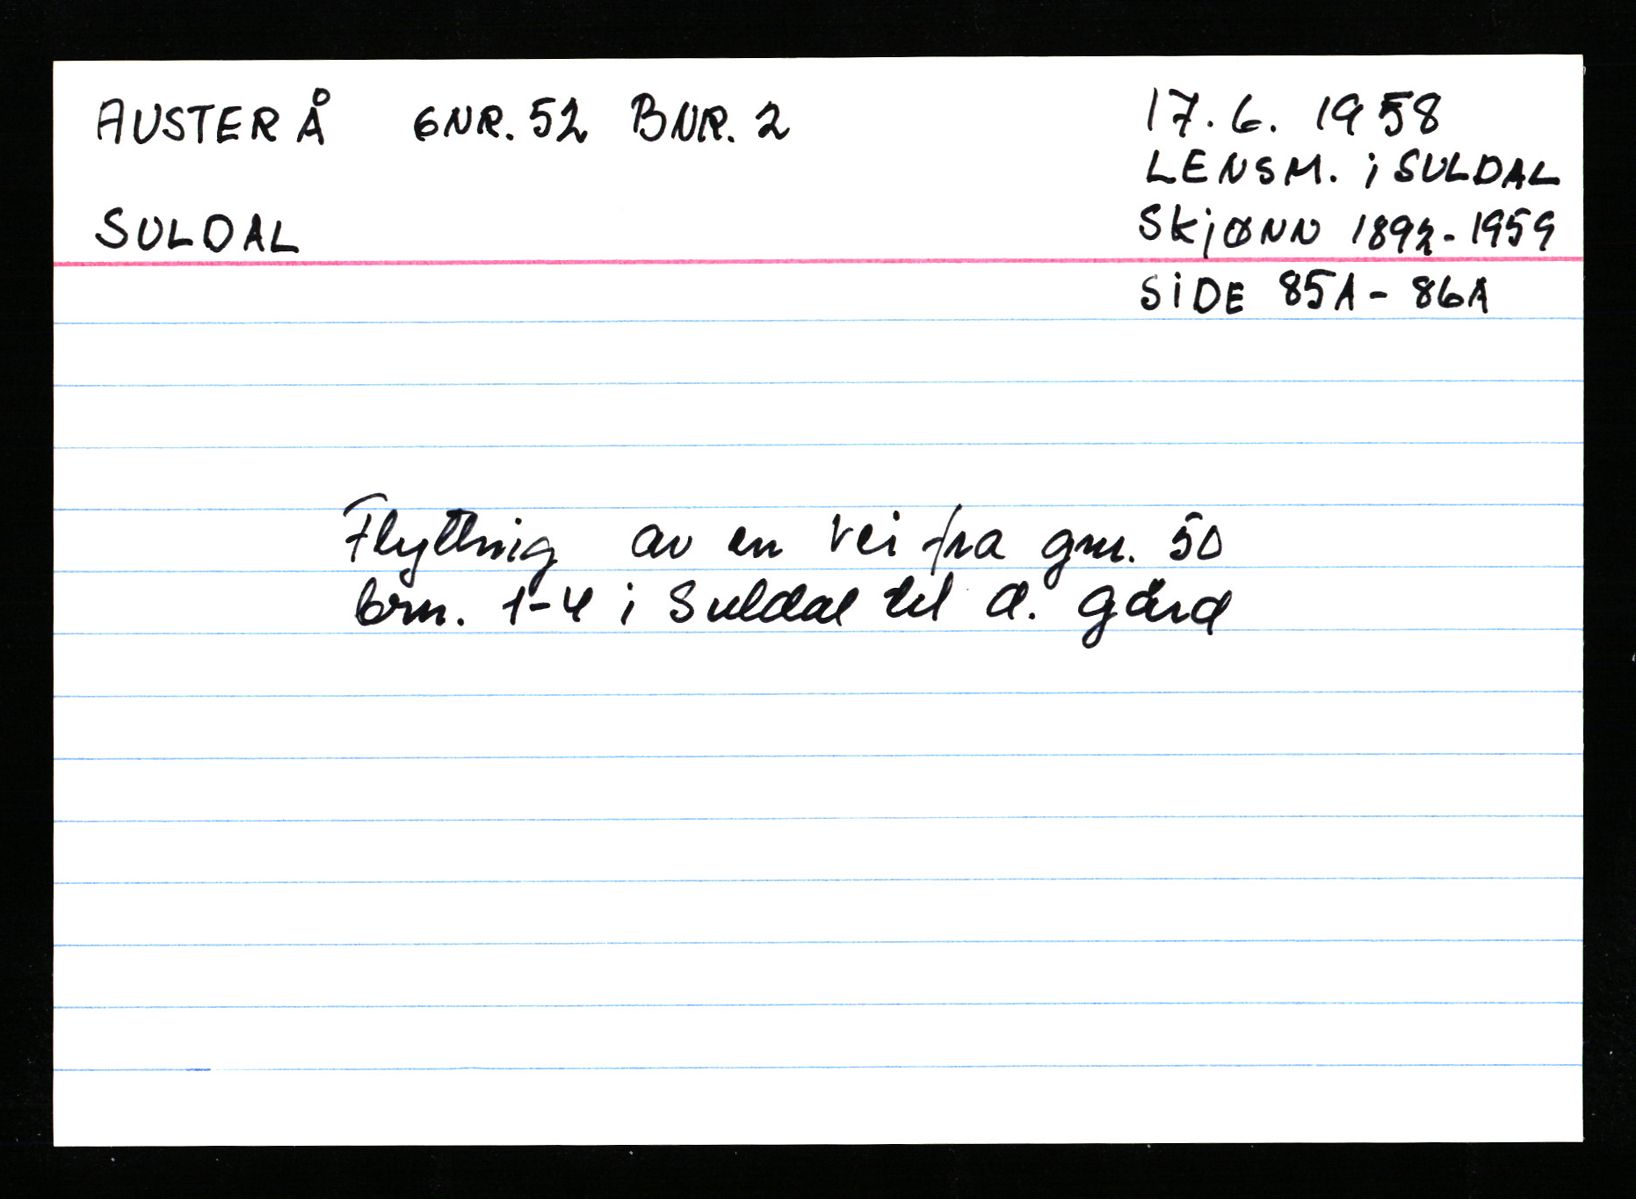 AUSTERÅ GNR. 52 BNR. 2
SULDAL
17. 6. 1958
LENSM. i SULDAL
SKjØNN 1892-1959
SiDE 85A - 86A
Flyttnig av en vei fra gnr. 50
bnr. 1-4 i Suldal til d. gård